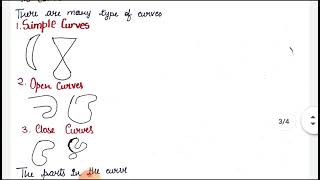 There are many type of curves
1. Simple Curves
2. Open Curves
3. Close Curves
The parts in the curve
3/4